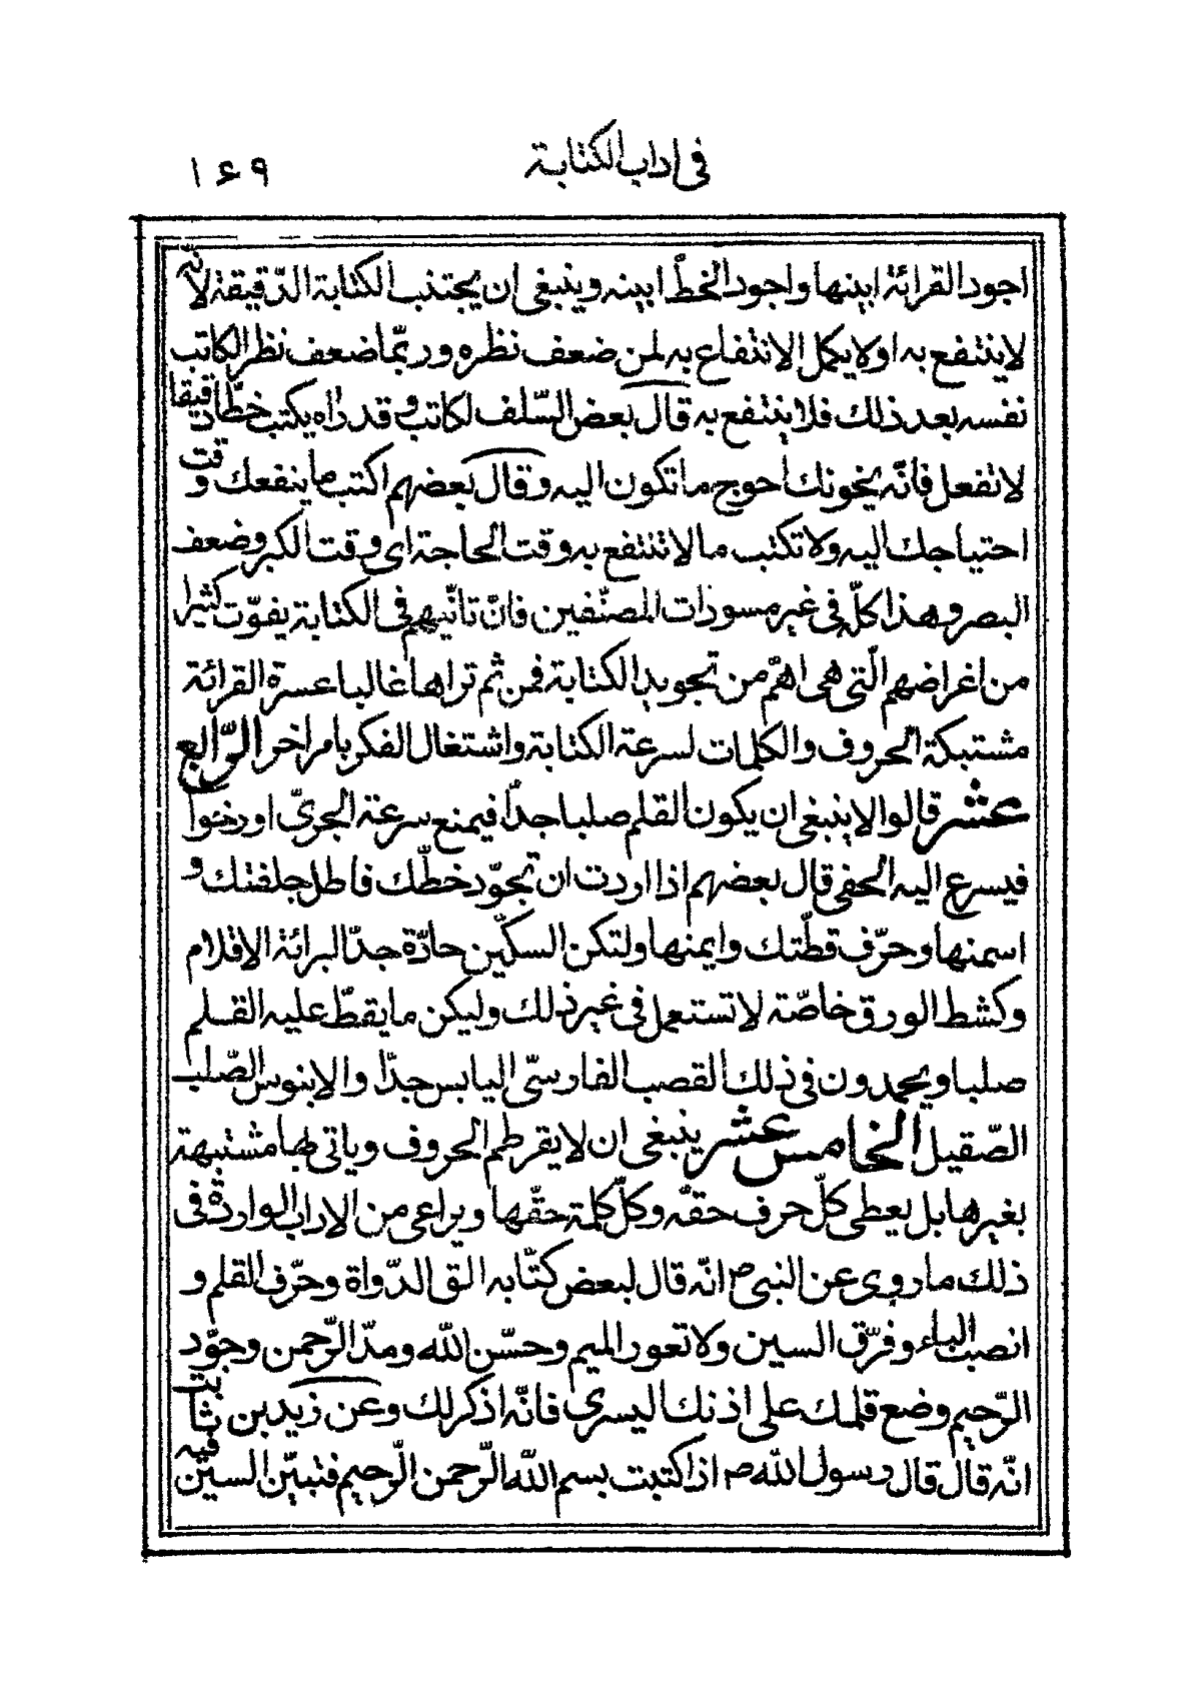 فى اداب الكتابة ١۴٩
اجود القرائة ابينها واجود الخطّ ابينه وينبغى ان يجتنب الكتابة الدّقيقة لانّه
لاينتفع به اولايكمل الانتفاع به لمن ضعف نظره وربّما ضعف نظر الكاتب
نفسه بعد ذلك فلا ينتفع به قال بعض السّلف لكاتب وقد راه يكتب خطّا دقيقا
لاتفعل فانّه يخونك احوج ماتكون اليه وقال بعضهم اكتب ماينفعك وقت
احتياجك اليه ولاتكتب مالاتنتفع به وقت الحاجة اى وقت الكبر وضعف
البصر وهذا كلّه فى غير مسودات المصنّفين فانّ تانّيهم فى الكتابة يفوّت كثيرا
من اغراضهم الّتى هى اهمّ من تجويد الكتابة فمن ثم تراها غالبا عسرة القرائة
مشتبكة الحروف والكلمات لسرعة الكتابة واشتغال الفكر بامر اخر الرّابع
عشر قالوا لاينبغى ان يكون القلم صلبا جدّا فيمنع سرعة الجرىّ او رخوا
فيسرع اليه الحفى قال بعضهم اذا اردت ان تجوّد خطّك فاطل جلفتك و
اسمنها وحرّف قطّتك وايمنها ولتكن السكّين حادّة جدّا لبرائة الاقلام
وكشط الورق خاصّة لاتستعمل فى غير ذلك وليكن مايقطّ عليه القلم
صلبا ويحمدون فى ذلك القصب الفارسّى اليابس جدّا والابنوس الصّلب
الصّقيل الخامس عشر ينبغى ان لايقرطم الحروف وياتى بها مشتبهة
بغيرها بل يعطى كلّ حرف حقّه وكلّ كلمة حقّها ويراعى من الاداب الواردة فى
ذلك ماروى عن النبى ص انّه قال لبعض كتّابه الق الدّواة وحرّف القلم و
انصب الباء وفرّق السين ولاتعور الميم وحسّن اللّه ومدّ الرّحمن وجوّد
الرّحيم وضع قلمك على اذنك اليسرى فانّه اذكر لك وعن زيد بن ثابت
انّه قال قال رسول اللّه ص اذا كتبت بسم اللّه الرّحمن الرّحيم فتبيّن السين فيه